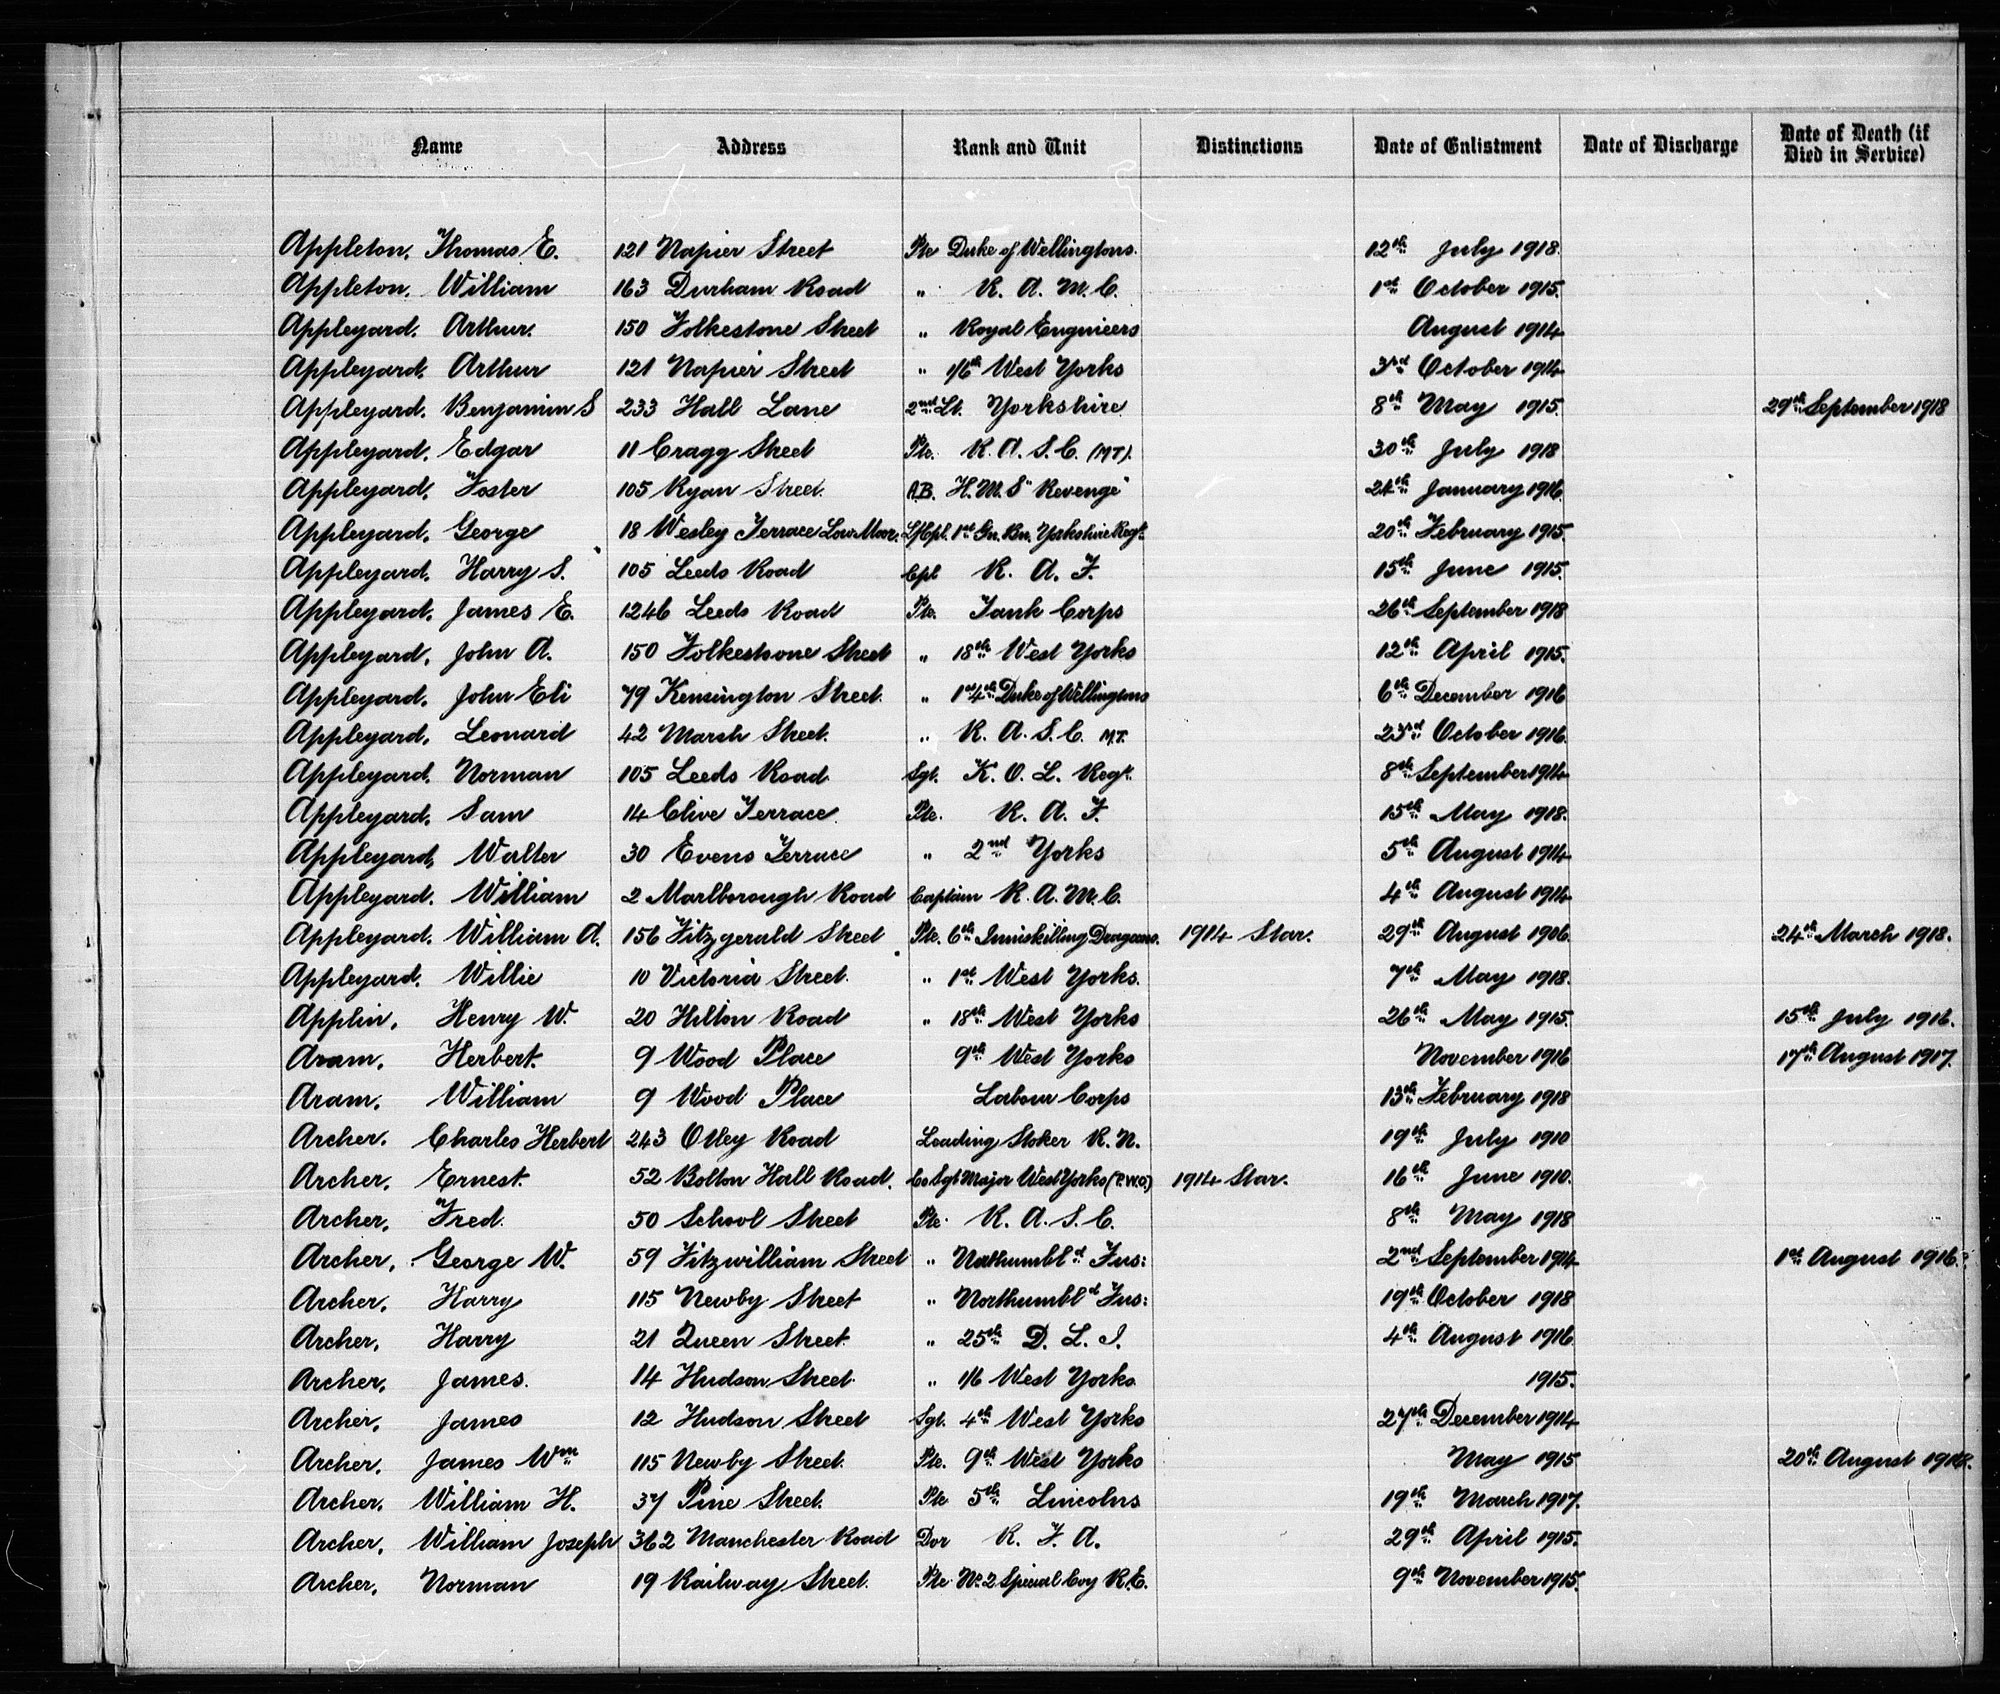 Name Address Rank and Unit Distinctions Date of Enlistment Date of Discharge Date of Death (if Died in Service)
Appleton, Thomas E. 121 Napier Street Pte Duke of Wellingtons. 12th July 1918.
Appleton, William 163 Durham Road " R. A. M. C. 1st October 1915.
Appleyard. Arthur. 150 Folkestone Street " Royal Engineers August 1914
Appleyard. Arthur 121 Napier Street " 1/6th West Yorks 3rd October 1914
Appleyard. Benjamin S 233 Hall Lane 2nd Lt. Yorkshire 8th May 1915. 29th September 1918
Appleyard. Edgar 11 Cragg Street Pte. R. A. S. C. (M.T). 30th July 1918
Appleyard, Foster 105 Ryan Street. A.B. H.M.S "Revenge" 24th January 1916.
Appleyard. George 18 Wesley Terrace Low Moor. L/Cpl. 1st Gn. Bn. Yorkshire Regt. 20th February 1915.
Appleyard. Harry S. 105 Leeds Road Cpl R. A. F. 15th June 1915.
Appleyard. James E. 1246 Leeds Road Pte. Tank Corps 26th September 1918
Appleyard, John A. 150 Folkestone Street " 18th West Yorks 12th April 1915.
Appleyard, John Eli 79 Kensington Street. " 1st 4th Duke of Wellingtons 6th December 1916
Appleyard, Leonard 42 Marsh Street. " R. A. S. C. M.T. 23rd October 1916.
Appleyard. Norman 105 Leeds Road Sgt. K. O. L. Regt. 8th September 1914
Appleyard, Sam 14 Clive Terrace Pte. R. A. F. 15th May 1918.
Appleyard, Walter 30 Evens Terrace " 2nd Yorks 5th August 1914
Appleyard. William 2 Marlborough Road Captain R. A. M. C. 4th August 1914
Appleyard. William A. 156 Fitzgerald Street Pte. 6th Inniskilling Dragoons. 1914 Star. 29th August 1906. 24th March 1918.
Appleyard. Willie 10 Victoria Street. " 1st West Yorks. 7th May 1918.
Applin, Henry W. 20 Hilton Road " 18th West Yorks 26th May 1915. 15th July 1916.
Aram, Herbert. 9 Wood Place 9th West Yorks November 1916 17th August 1917.
Aram, William 9 Wood Place Labour Corps 13th February 1918
Archer. Charles Herbert 243 Otley Road Leading Stoker R. N. 19th July 1910
Archer. Ernest. 52 Bolton Hall Road. Co Sgt Major West Yorks (P.W.O.) 1914 Star. 16th June 1910.
Archer, Fred. 50 School Street Pte. R. A. S. C. 8th May 1918
Archer, George W. 59 Fitzwilliam Street " Northumbld Fus: 2nd September 1914 1st August 1916.
Archer. Harry 115 Newby Street " Northumbld Fus: 19th October 1918
Archer, Harry 21 Queen Street. " 25th D. L. I. 4th August 1916
Archer, James. 14 Hudson Street. " 1/6 West Yorks 1915.
Archer, James 12 Hudson Street Sgt. 4th West Yorks 27th December 1914
Archer, James Wm 115 Newby Street. Pte. 9th West Yorks May 1915 20th August
Archer. William H. 37 Pine Street. Pte 5th Lincolns 19th March 1917.
Archer, William Joseph 362 Manchester Road Dvr R. F. A. 29th April 1915.
Archer, Norman 19 Railway Street. Pte No 2 Special Coy R.E. 9th November 1915.